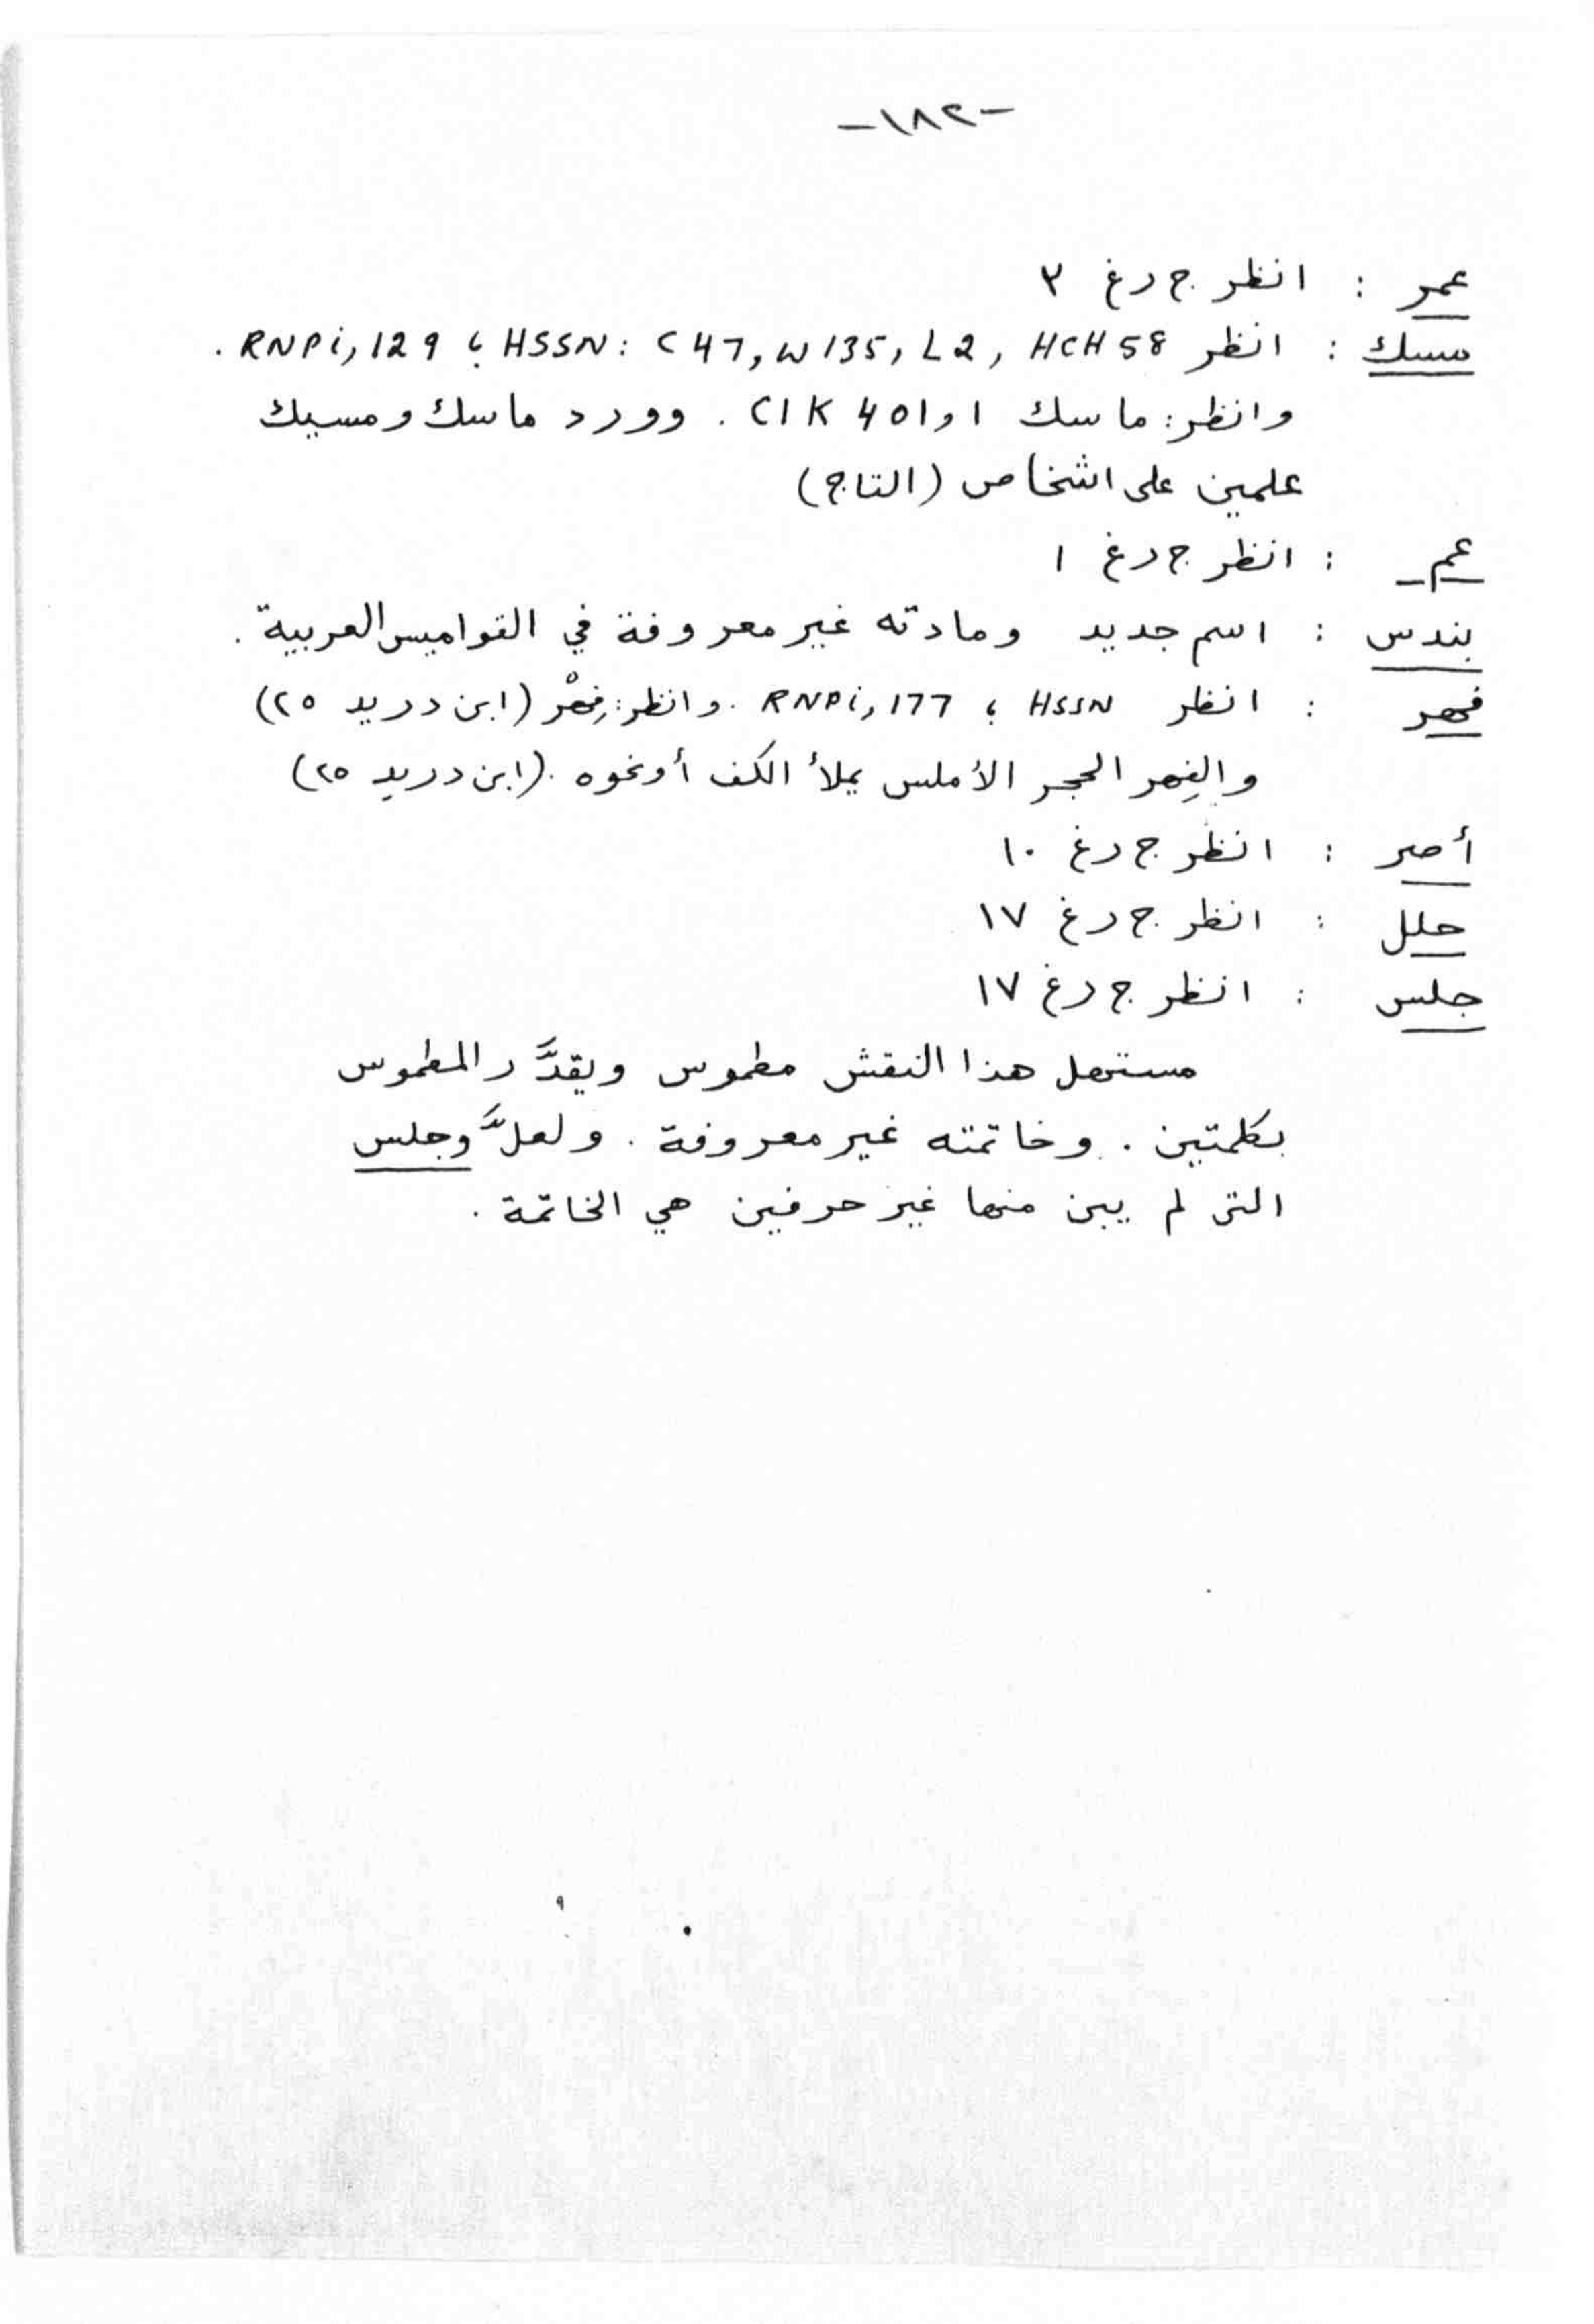 -١٨٢-
عمر : انظر ج د غ ٢
مسك : انظر HSSN: C47, W135, L2, HCH58 ؛ RNPi, 129 .
وانظر: ماسك ١ و CIK 401 . وورد ماسك ومسيك
علمين على اشخاص (التاج)
عم_ : انظر ج د غ ١
بندس : اسم جديد ومادته غير معروفة في القواميس العربية .
فهر : انظر HSSN ؛ RNPi, 177 . وانظر: فِهْر (ابن دريد ٢٥)
والفِهر الحجر الأملس يملأ الكف أو نحوه . (ابن دريد ٢٥)
أصر : انظر ج د غ ١٠
حلل : انظر ج د غ ١٧
جلس : انظر ج د غ ١٧
مستهل هذا النقش مطموس ويقدَّر المطموس
بكلمتين . وخاتمته غير معروفة . ولعلَّ وجلس
التي لم يبن منها غير حرفين هي الخاتمة .